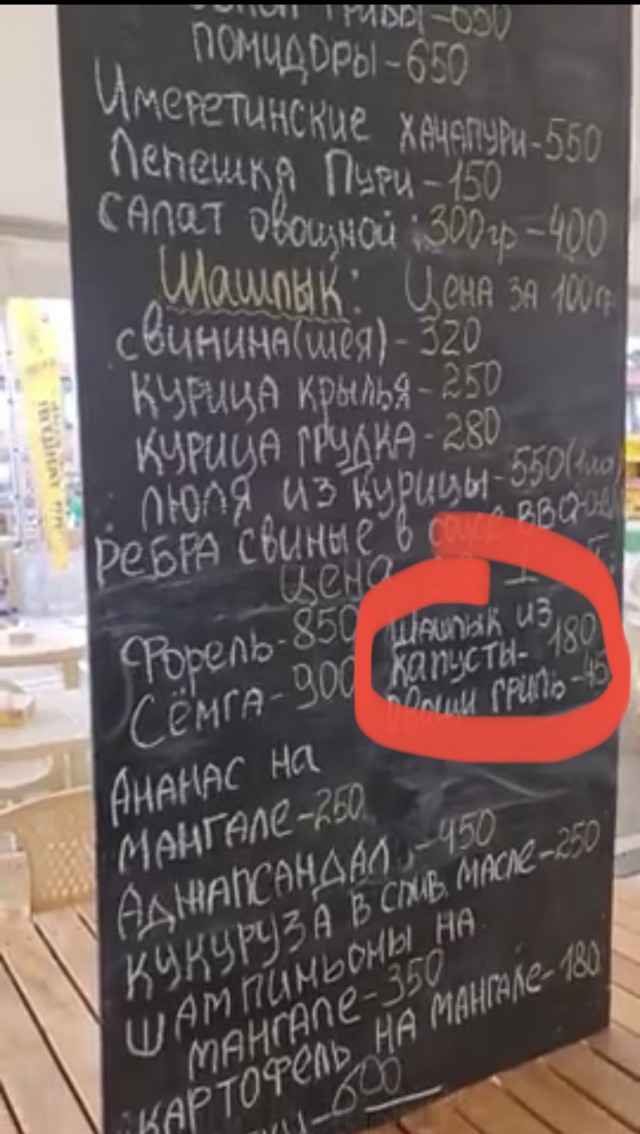 ГРИБЫ-650
ПОМИДОРЫ-650
ИМЕРЕТИНСКИЕ ХАЧАПУРИ-550
ЛЕПЕШКА ПУРИ-150
САЛАТ ОВОЩНОЙ:300гр-400
Шашлык: Цена за 100гр
СВИНИНА(ШЕЯ)-320
КУРИЦА КРЫЛЬЯ-250
КУРИЦА ГРУДКА-280
ЛЮЛЯ ИЗ КУРИЦЫ-550
РЕБРА СВИНЫЕ В СОУСЕ BBQ
ЦЕНА
ФОРЕЛЬ-850
СЁМГА-900
ШАШЛЫК ИЗ
КАПУСТЫ-180
ОВОЩИ ГРИЛЬ-45
АНАНАС НА
МАНГАЛЕ-250
АДЖАПСАНДАЛ-450
КУКУРУЗА В СЛИВ. МАСЛЕ-250
ШАМПИНЬОНЫ НА
МАНГАЛЕ-350
КАРТОФЕЛЬ НА МАНГАЛЕ-180
600